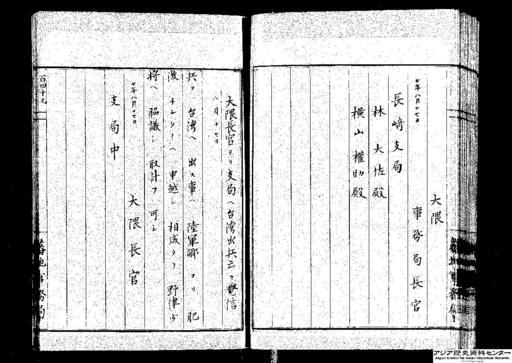 大隈
事務局長官
七年八月十七日
長崎支局
林大佐殿
横山權助殿
大隈長官ヨリ支局ヘ台湾出兵云々電信
八月十七日
兵ヲ台湾ヘ出ス事ヘ陸軍卿ヨリ肥
後チレタイヘ申越シ相成タリ野津少
将ヘ協議シ取計フ可シ
七年八月十七日
大隈長官
支局中
百四十九
蕃地事務局
アジア歴史資料センター
Japan Center for Asian Historical Records